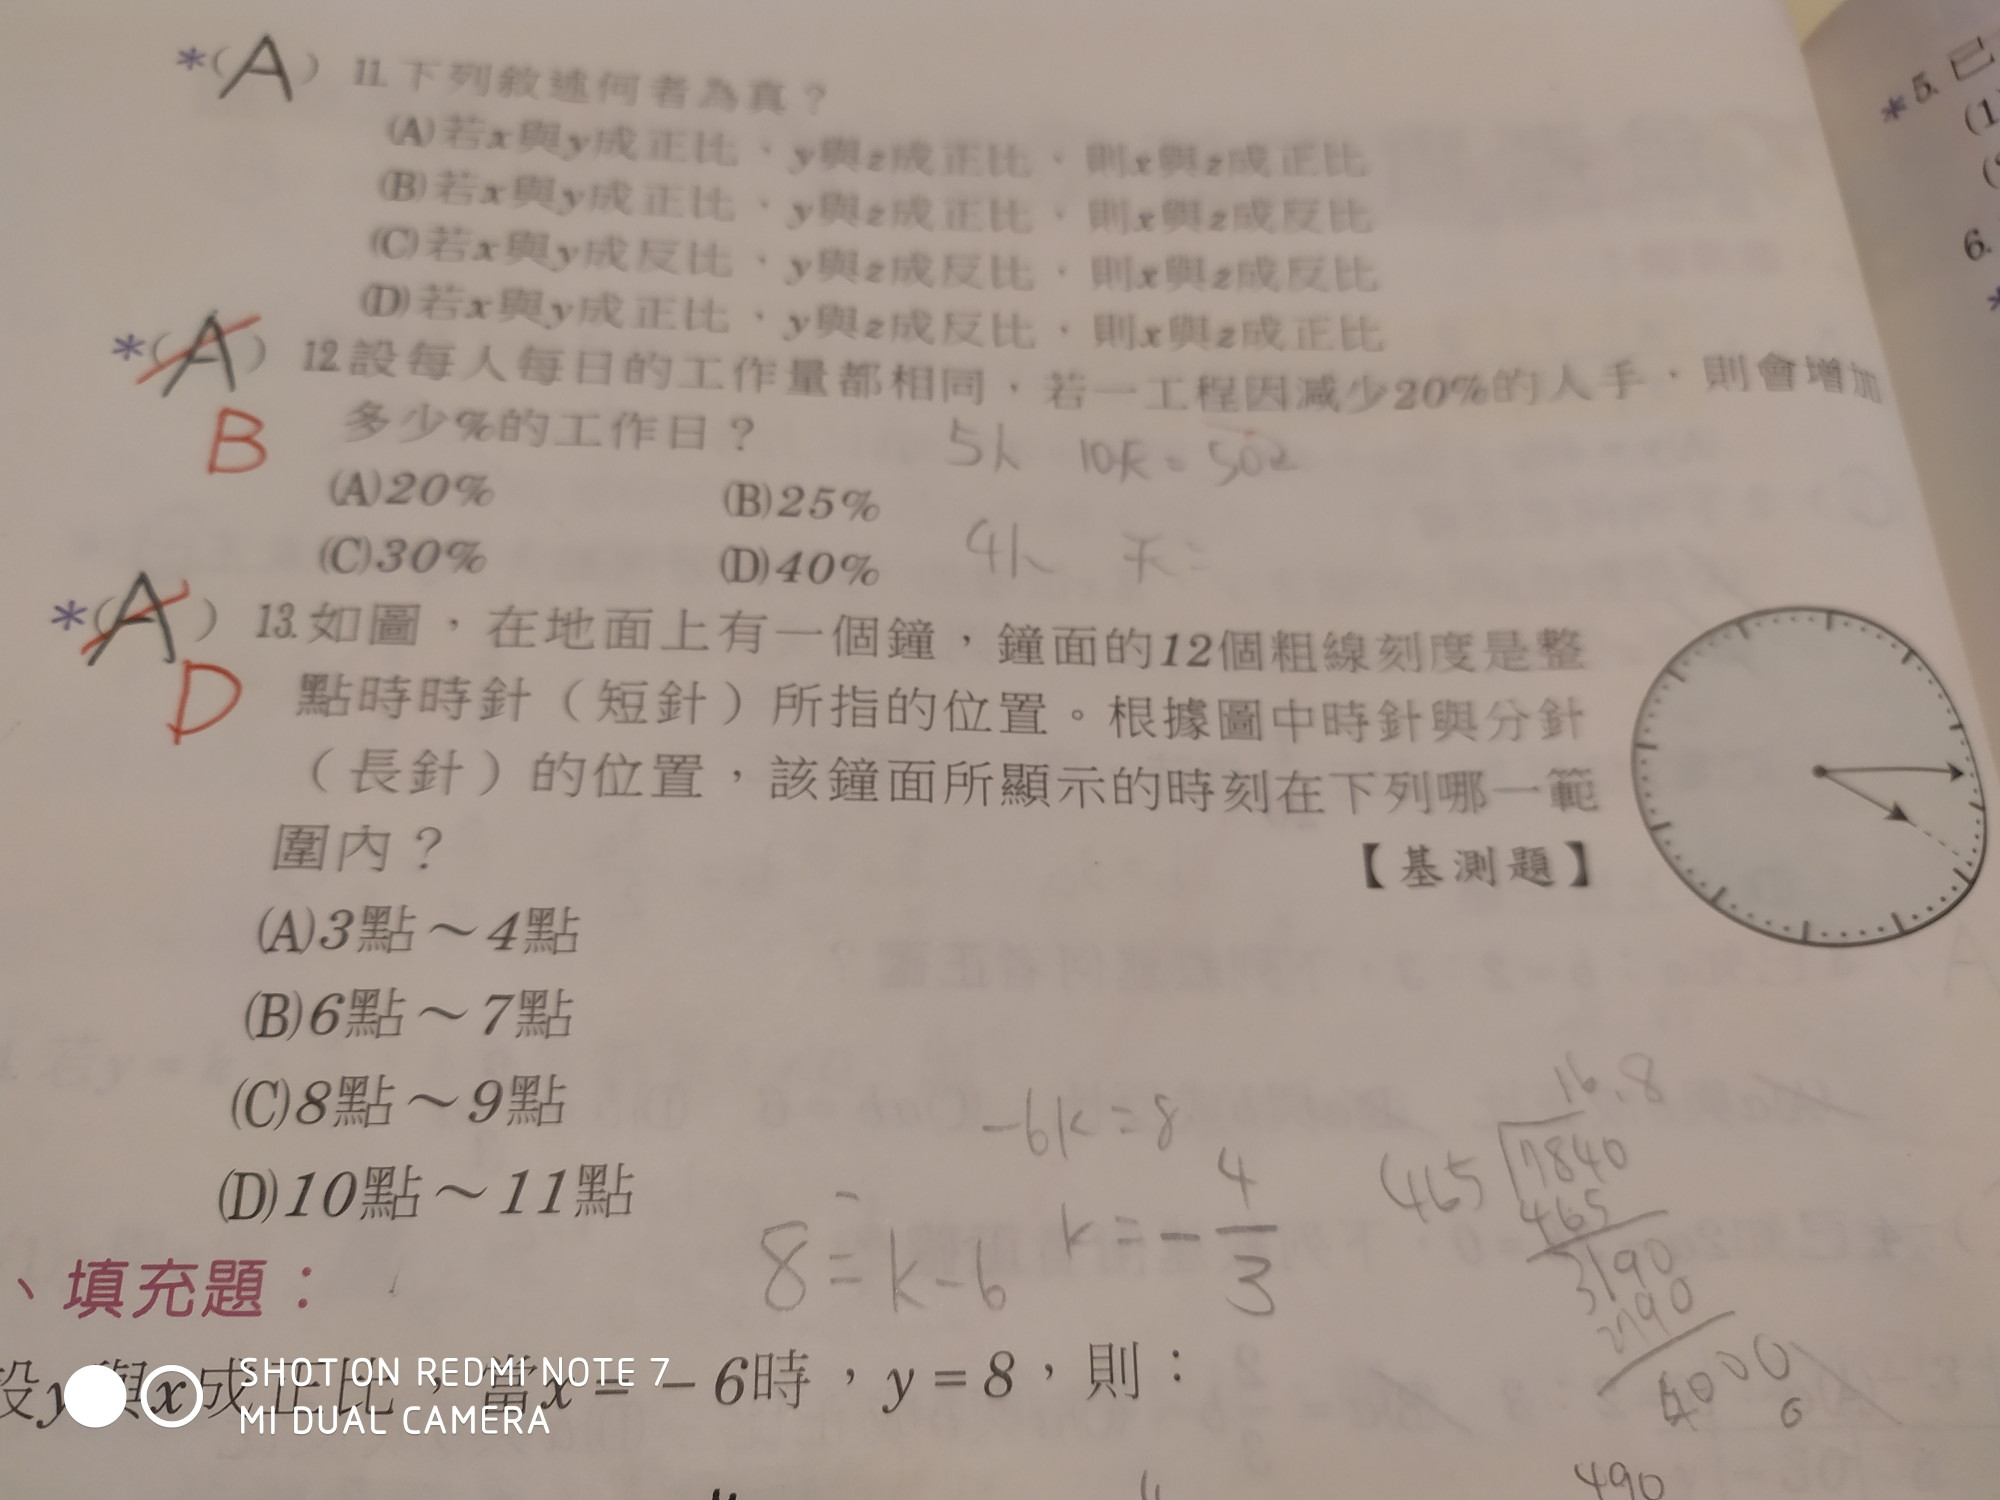 *(A) 11.下列敘述何者為真？
(A)若x與y成正比、y與z成正比，則x與z成正比
(B)若x與y成正比、y與z成正比，則x與z成反比
(C)若x與y成反比、y與z成反比，則x與z成反比
(D)若x與y成正比、y與z成反比，則x與z成正比
*(A) 12.設每人每日的工作量都相同，若一工程因減少20%的人手，則會增加
B
多少%的工作日？
5人 10天=50
(A)20% (B)25%
4人 天=
(C)30% (D)40%
*(A) 13.如圖，在地面上有一個鐘，鐘面的12個粗線刻度是整
D
點時時針（短針）所指的位置。根據圖中時針與分針
（長針）的位置，該鐘面所顯示的時刻在下列哪一範
圍內？ 【基測題】
(A)3點～4點
(B)6點～7點
(C)8點～9點
(D)10點～11點
-6k=8
k=-4/3
8=k-6
16.8
465 7840
465
3190
2790
4000
490
、填充題：
設y與x成正比，當x=-6時，y=8，則：
SHOT ON REDMI NOTE 7
MI DUAL CAMERA
*5.已
(1
6.